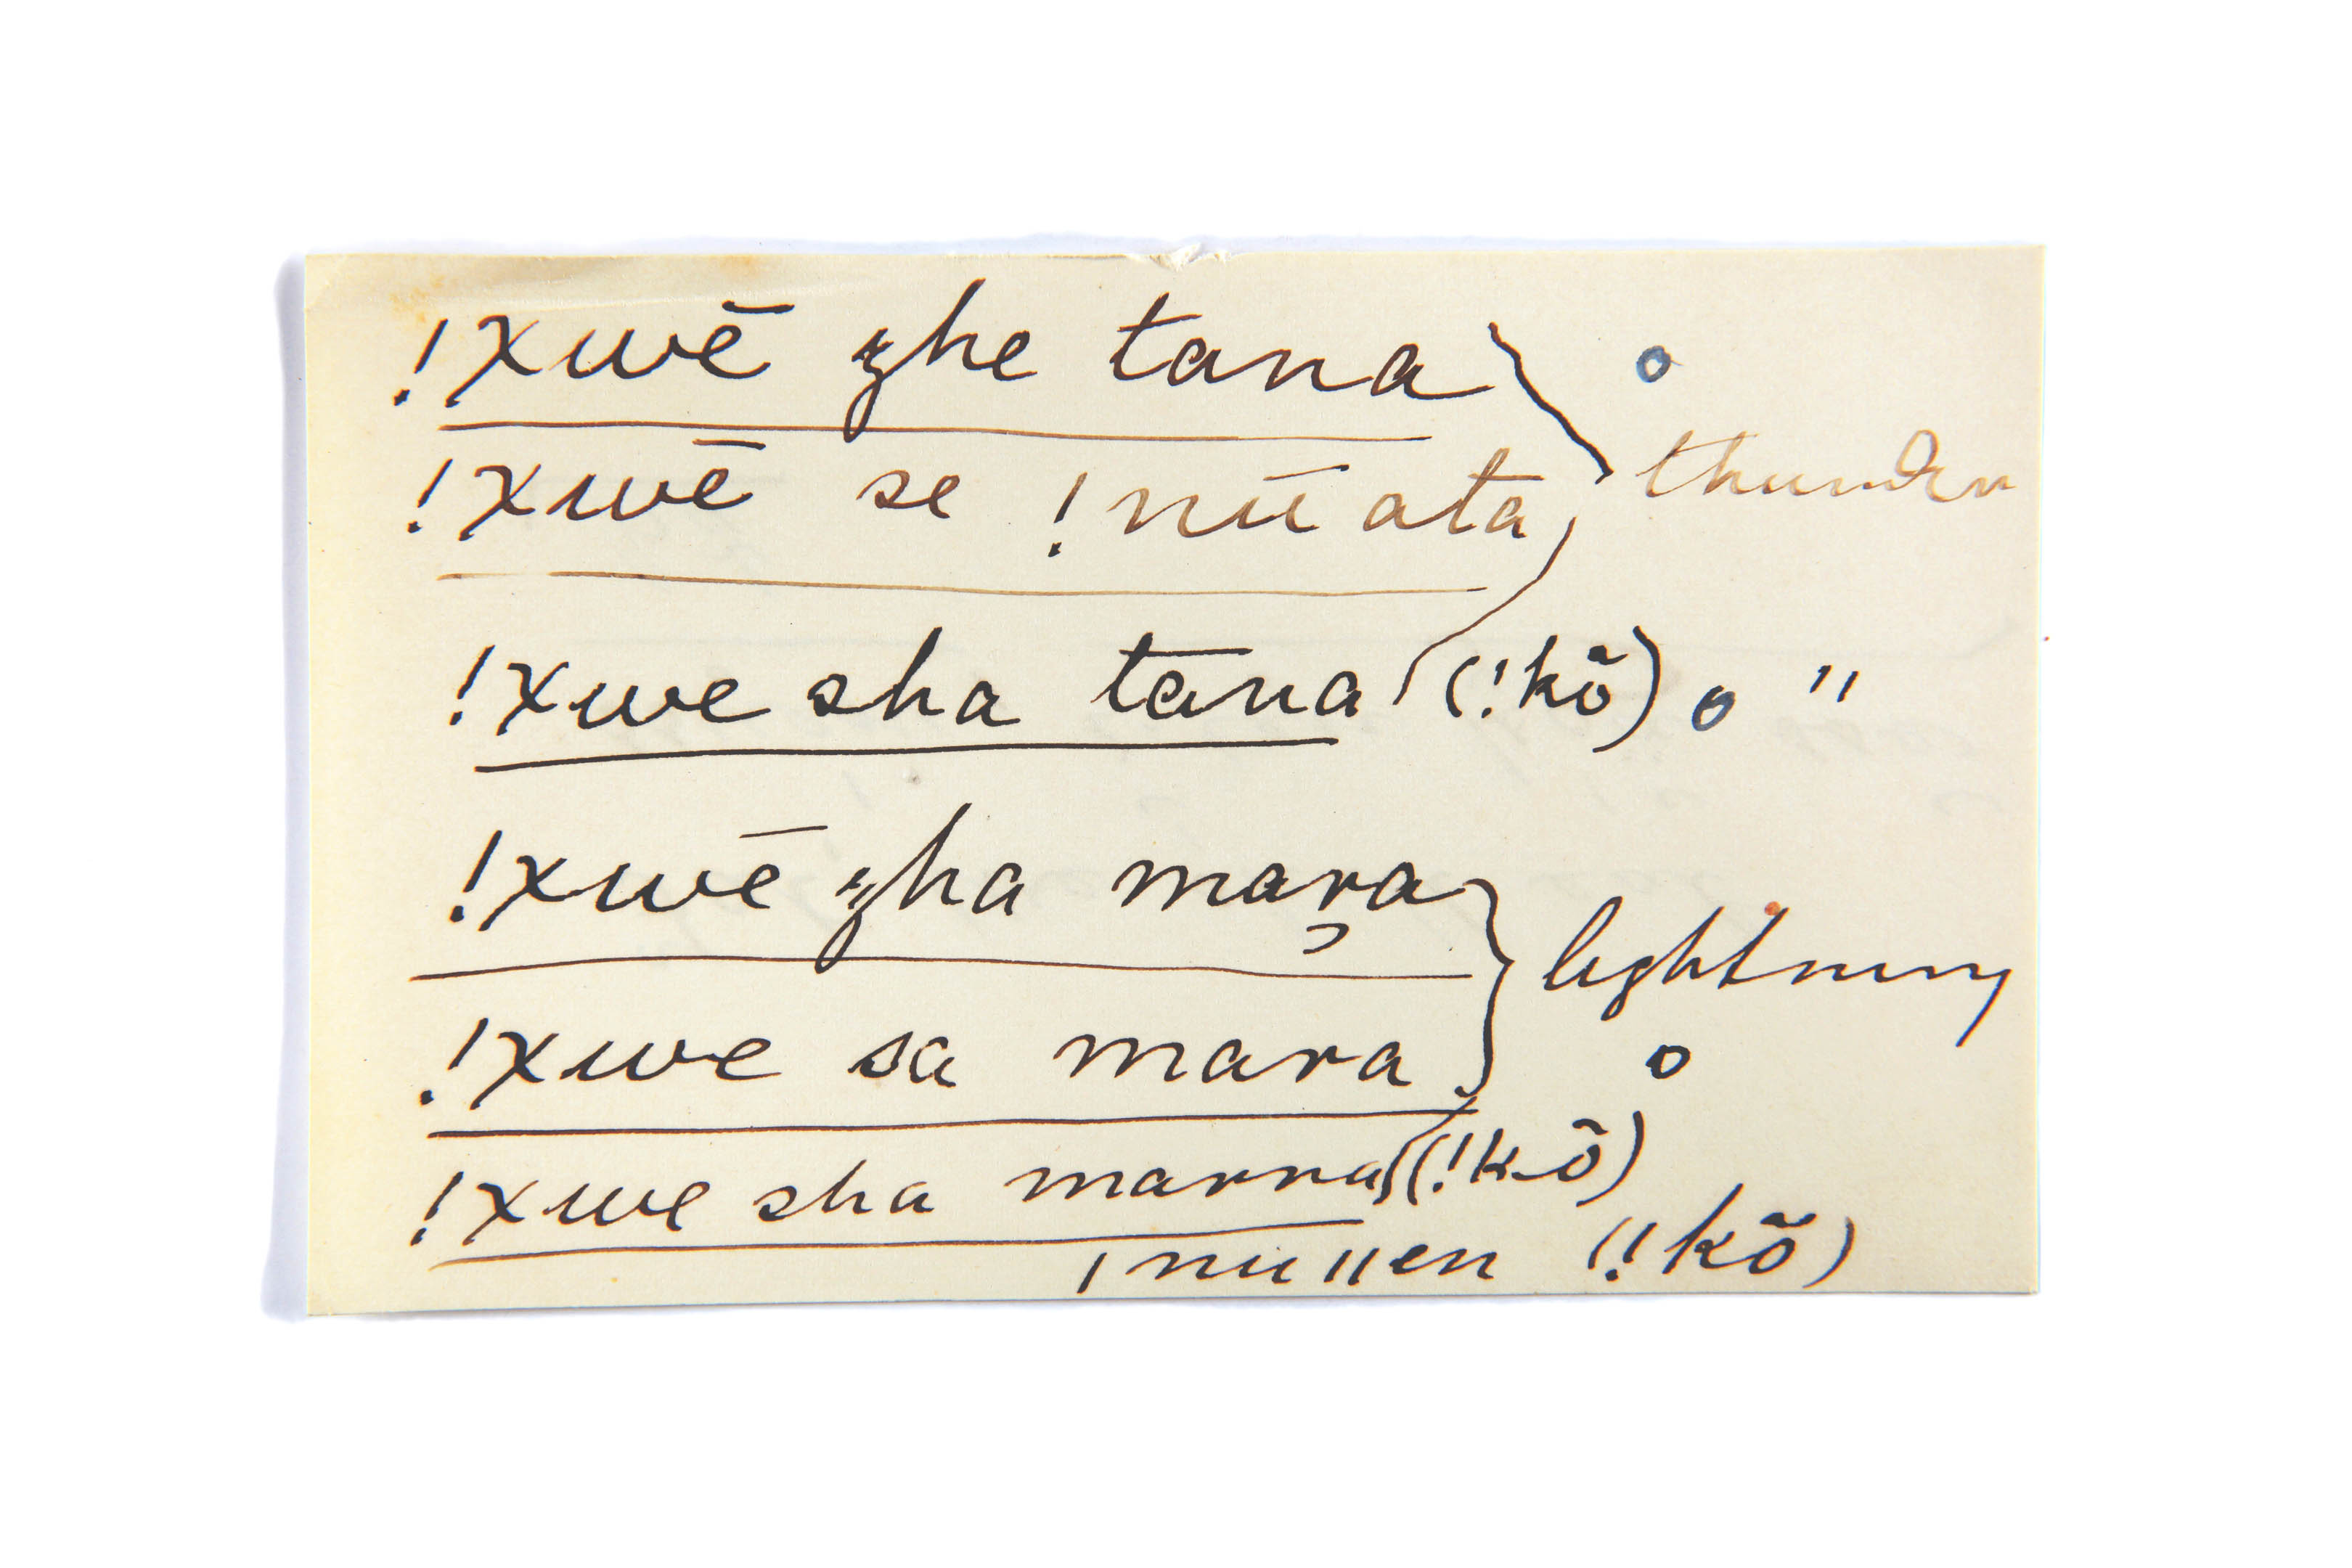 !xwē zhe tana o
!xwē se !nūata thunder
!xwe sha tana (!kõ) o "
!xwē zha mara
lightning
!xwe sa mara o
!xwe sha marra (!kõ)
ǀnuǁen (!kõ)